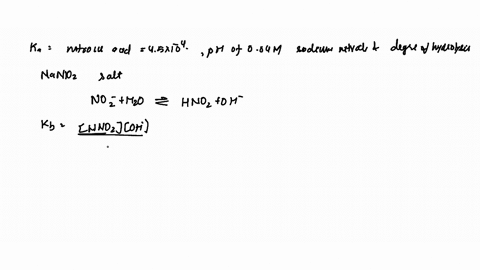 Ka = nitrous acid = 4.5×10⁻⁴, pH of 0.04M sodium nitrite & degree of hydrolysis
NaNO₂ salt
NO₂⁻ + H₂O ⇌ HNO₂ + OH⁻
Kb = [HNO₂][OH⁻]